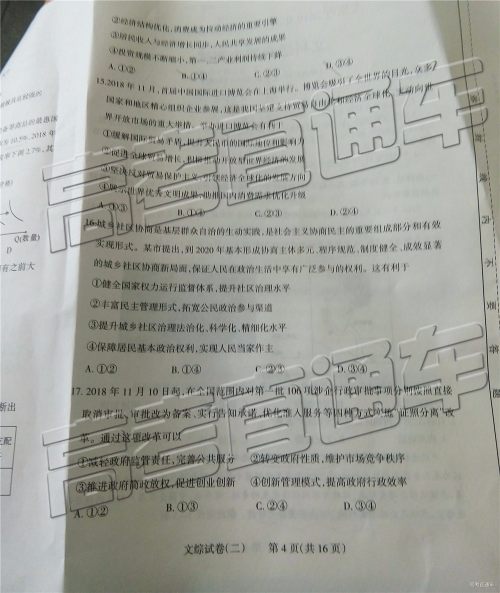 ②经济结构优化,消费成为拉动经济的重要引擎
③居民收入与经济增长同步,人民共享发展的成果
④投资规模不断缩小,第一、二产业利润持续下降
A.①② B.①④ C.②③ D.③④
15.2018年11月,首届中国国际进口博览会在上海举行。博览会吸引了全世界的目光,众多
国家和地区精心组织企业参展,这是我国坚定支持贸易自由化和经济全球化、主动向世
界开放市场的重大举措。举办进口博览会有利于
①缓解国际贸易矛盾,提升人民币的国际地位和影响力
②促进全球贸易增长,积极推动开放型世界经济的发展
③坚决反对贸易保护主义,引领经济全球化的发展方向
④展示世界优秀文明成果,助推国内消费需求优化升级
A.①③ B.①④ C.②③ D.②④
16.城乡社区协商是基层群众自治的生动实践,是社会主义协商民主的重要组成部分和有效
实现形式。某市提出,到2020年基本形成协商主体多元、程序规范、制度健全、成效显著
的城乡社区协商新局面,保证人民在政治生活中享有广泛参与的权利。这有利于
①健全国家权力运行监督体系,提升社区治理水平
②丰富民主管理形式,拓宽公民政治参与渠道
③提升城乡社区治理法治化、科学化、精细化水平
④保障居民基本政治权利,实现人民当家作主
A.①② B.①④ C.②③ D.③④
17.2018年11月10日起,在全国范围内对第一批106项涉企行政审批事项分别按照直接
取消审批、审批改为备案、实行告知承诺、优化准入服务等四种方式实施“证照分离”改
革。通过这项改革可以
①减轻政府监管责任,完善公共服务 ②转变政府性质,维护市场竞争秩序
③推进政府简政放权,促进创业创新 ④创新管理模式,提高政府行政效率
A.①② B.①③ C.②④ D.③④
文综试卷(二) 第4页(共16页)
高考直通车
高考直通车
Q(数量)
D